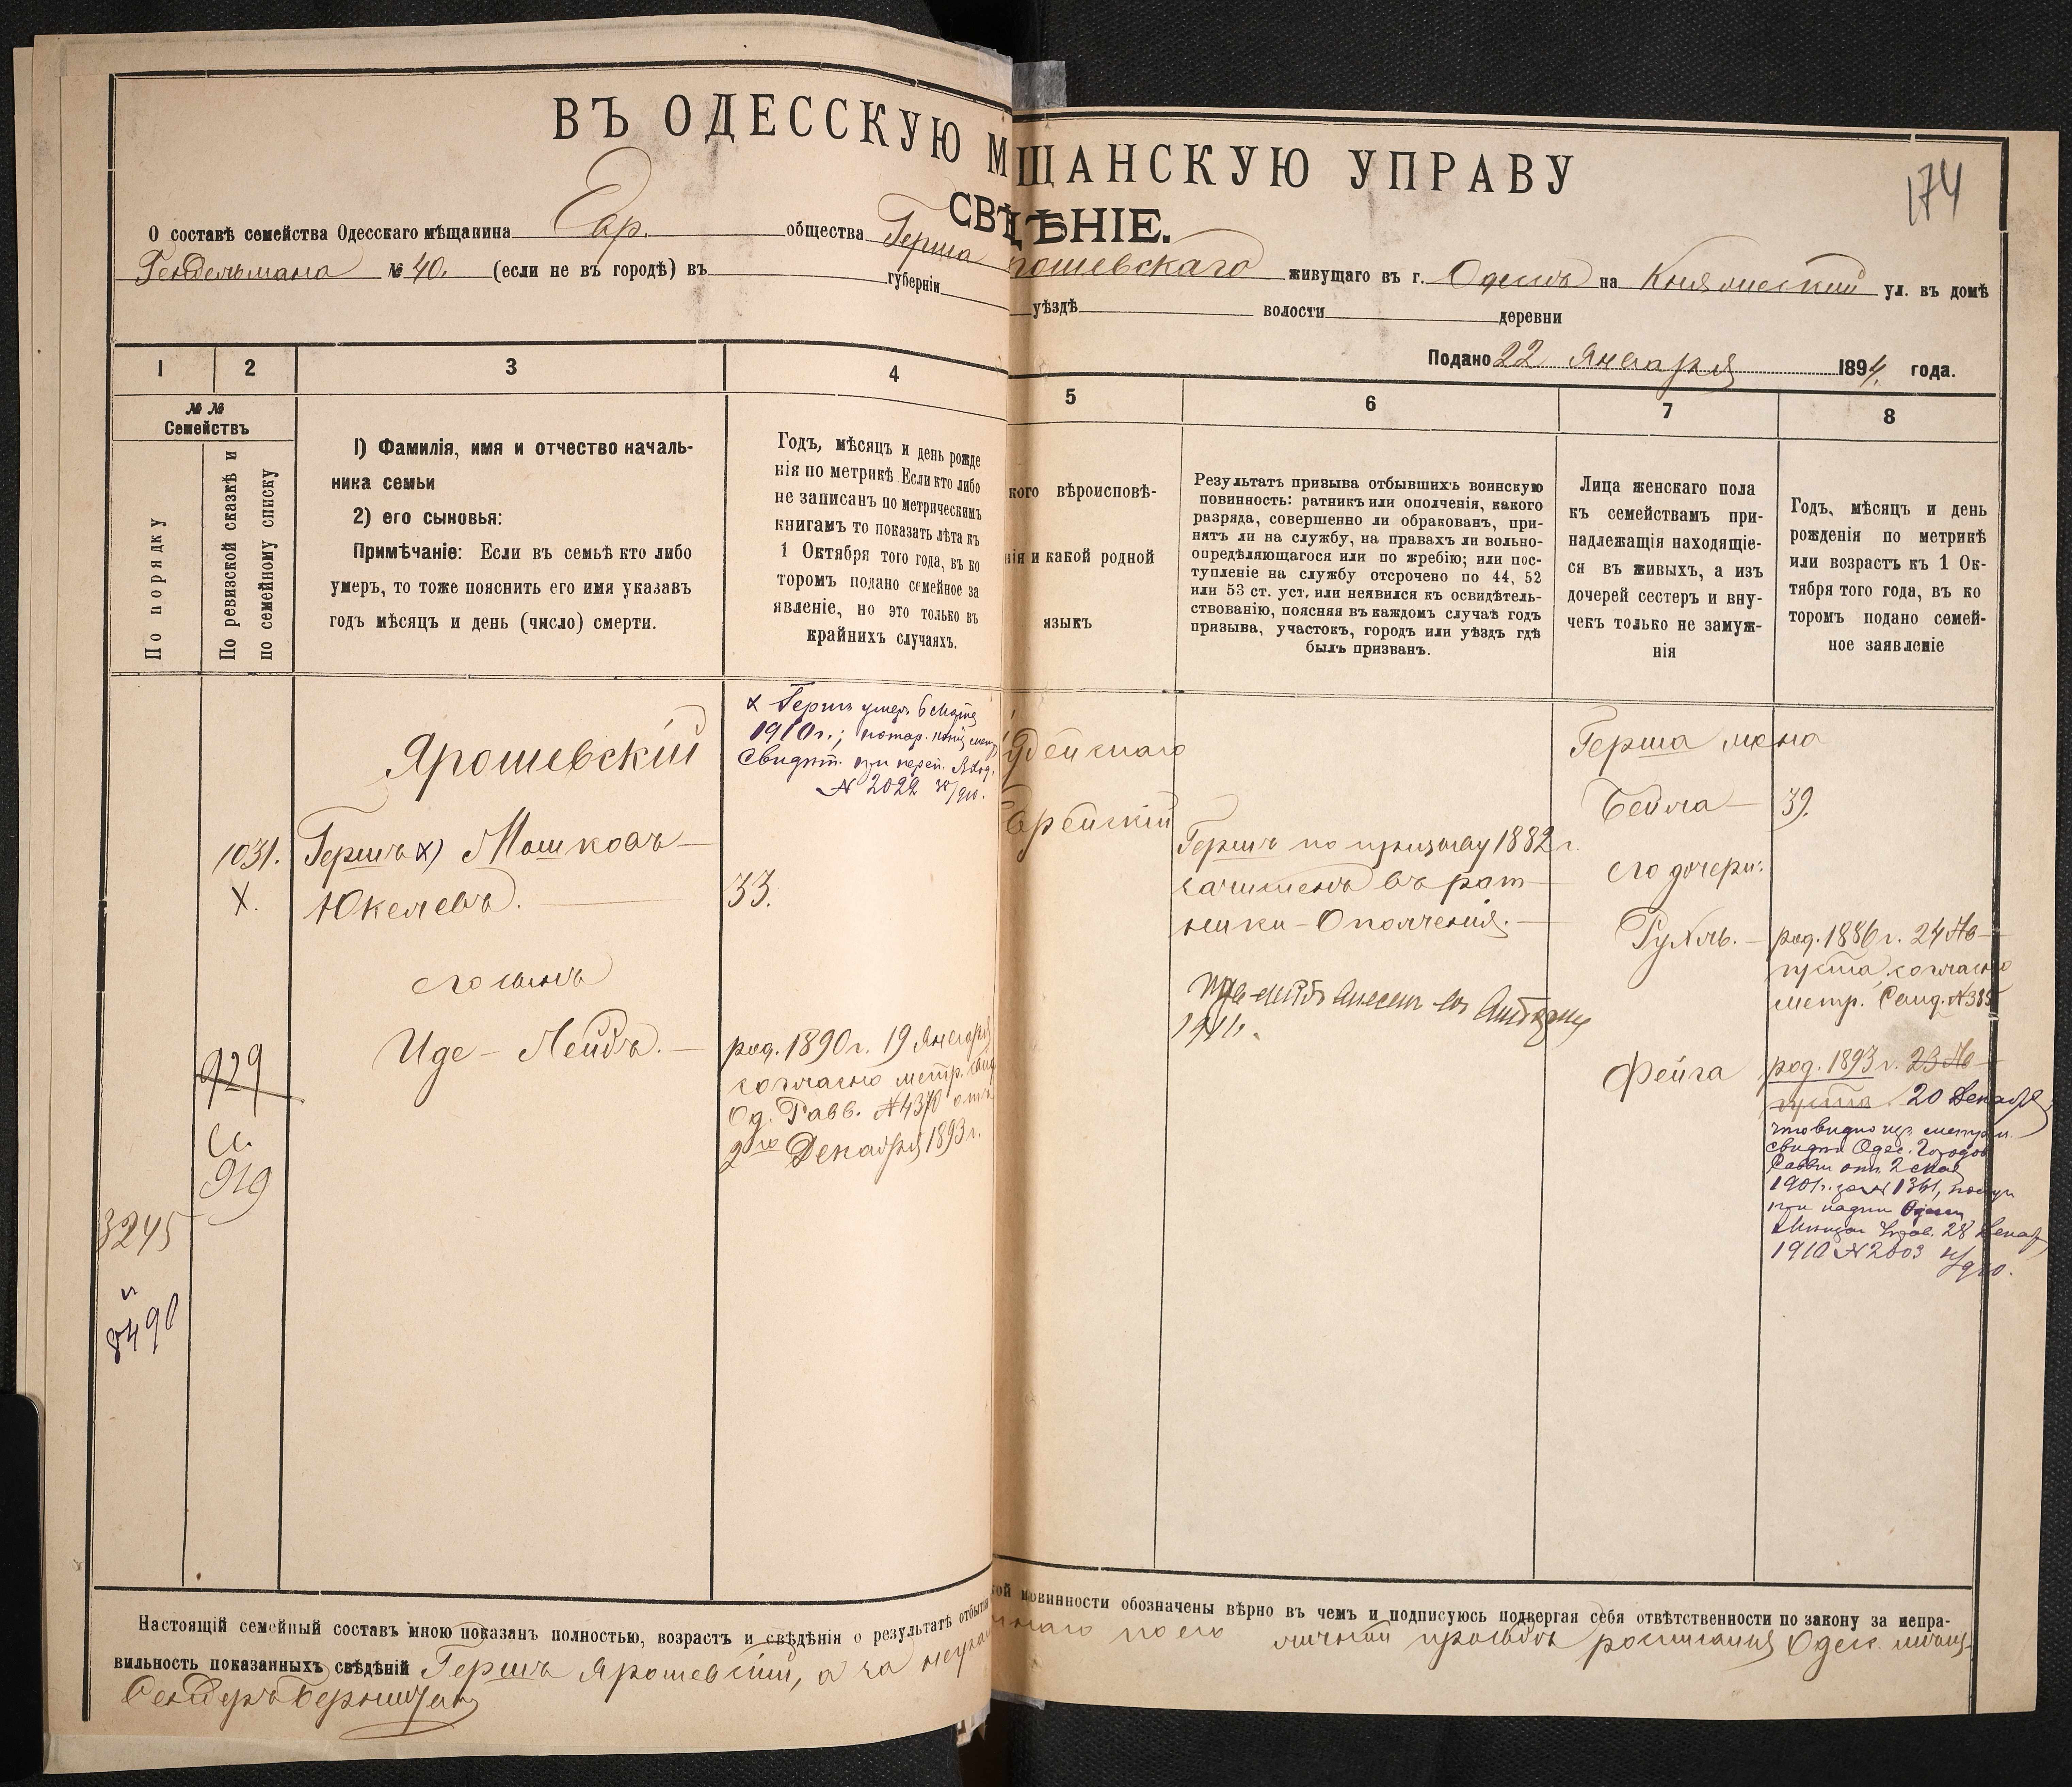 ВЪ ОДЕССКУЮ М ЩАНСКУЮ УПРАВУ
174
СВѢДѢНІЕ.
О составѣ семейства Одесскаго мѣщанина Евр. общества Герша Ярошевскаго живущаго въ г. Одессѣ на Княжеской ул. въ домѣ
Гендельмана № 40. (если не въ городѣ) въ губерніи уѣздѣ волости деревни
Подано 22 Января 1894 года.
1 2 3 4 5 6 7 8
№ №
Семействъ
По порядку
По ревизской сказкѣ и
по семейному списку
1) Фамилія, имя и отчество началь-
ника семьи
2) его сыновья:
Примѣчаніе: Если въ семьѣ кто либо
умеръ, то тоже пояснить его имя указавъ
годъ мѣсяцъ и день (число) смерти.
Годъ, мѣсяцъ и день рожде
нія по метрикѣ Если кто либо
не записанъ по метрическимъ
книгамъ то показать лѣта къ
1 Октября того года, въ ко
торомъ подано семейное за
явленіе, но это только въ
крайнихъ случаяхъ.
кого вѣроисповѣ-
нія и какой родной
языкъ
Результатъ призыва отбывшихъ воинскую
повинность: ратникъ или ополченія, какого
разряда, совершенно ли обракованъ, при-
нятъ ли на службу, на правахъ ли вольно-
опредѣляющагося или по жребію; или пос-
тупленіе на службу отсрочено по 44, 52
или 53 ст. уст. или неявился къ освидѣтель-
ствованію, поясняя въ каждомъ случаѣ годъ
призыва, участокъ, городъ или уѣздъ гдѣ
былъ призванъ.
Лица женскаго пола
къ семействамъ при-
надлежащія находящіе-
ся въ живыхъ, а изъ
дочерей сестеръ и вну-
чекъ только не замуж-
нія
Годъ, мѣсяцъ и день
рожденія по метрикѣ
или возрастъ къ 1 Ок-
тября того года, въ ко
торомъ подано семей-
ное заявленіе
Ярошевскій
х Гершъ умеръ 6 Марта
1910 г.;
Свидѣт. при
№ 2022
1031. Гершъ х) Мошковъ
Х. Юкелевъ. 33.
его сынъ
929 Иде-Лейбъ. род. 1890 г. 19 Января
согласно метр.
Од. Равв. № 4370 отъ
2го Декабря 1893 г.
919
3245
и
8490
Іудейскаго
Еврейскій
Гершъ по призыву 1882 г.
зачисленъ въ рат-
ники-Ополченія.
1911.
Герша жена
Бейла 39.
его дочери:
Рухль. род. 1886 г. 24 Ав-
густа согласно
метр. Свид. № 385
Фейга род. 1893 г. 23 Ав-
густа 20 Декабря
что видно из метрич.
свидѣт Одес. Городов
Раввин отъ 2 мая
1901 г. за № 1361,
при
Мѣщан Управ. 28 Декаб
1910 № 2003
Настоящій семейный составъ мною показанъ полностью, возрастъ и свѣдѣнія о результатѣ отбытія кой повинности обозначены вѣрно въ чемъ и подписуюсь подвергая себя отвѣтственности по закону за непра-
вильность показанныхъ свѣдѣній Гершъ Ярошевскій, а за неграмотнаго по его личной просьбѣ росписался Одес. мѣщ.
Сендеръ